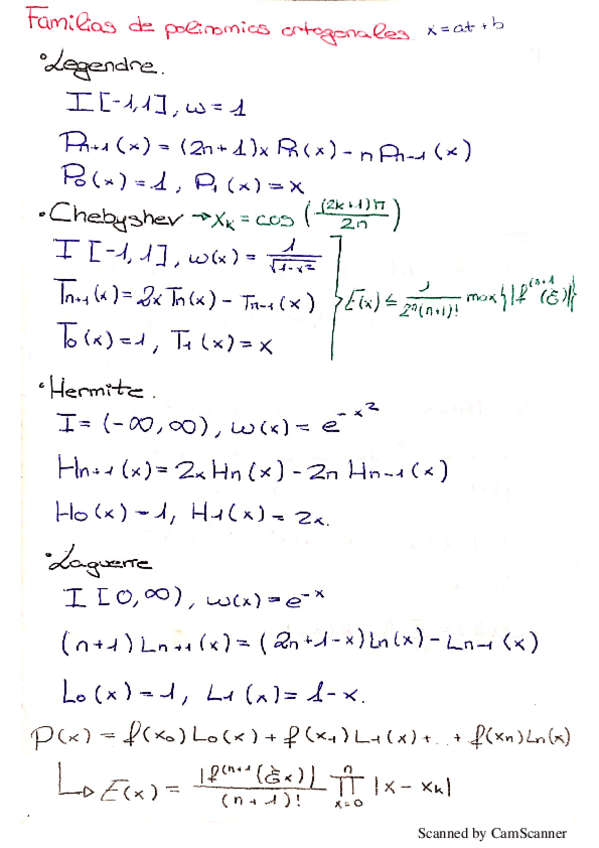 Familias de polinomios ortogonales x = at + b
• Legendre.
I [-1,1], w = 1
Pn+1 (x) = (2n+1)x Pn(x) - n Pn-1 (x)
P0(x) = 1, P1(x) = x
• Chebyshev → xk = cos ((2k+1)π / 2n)
I [-1,1], w(x) = 1/√(1-x²)
Tn+1(x) = 2x Tn(x) - Tn-1(x) } E(x) ≤ 1/(2ⁿ(n+1)!) max{|f^(n+1 (ξ)|}
T0(x) = 1, T1(x) = x
• Hermite.
I = (-∞,∞), w(x) = e^-x²
Hn+1(x) = 2x Hn(x) - 2n Hn-1(x)
H0(x) - 1, H1(x) = 2x.
• Laguerre
I [0,∞), w(x) = e^-x
(n+1) Ln+1(x) = (2n+1-x) Ln(x) - Ln-1(x)
L0(x) = 1, L1(x) = 1-x.
P(x) = f(x0) L0(x) + f(x1) L1(x) + .. + f(xn) Ln(x)
↳ E(x) = |f^(n+1 (ξx)| / (n+1)! ∏ⁿx=0 |x - xk|
Scanned by CamScanner